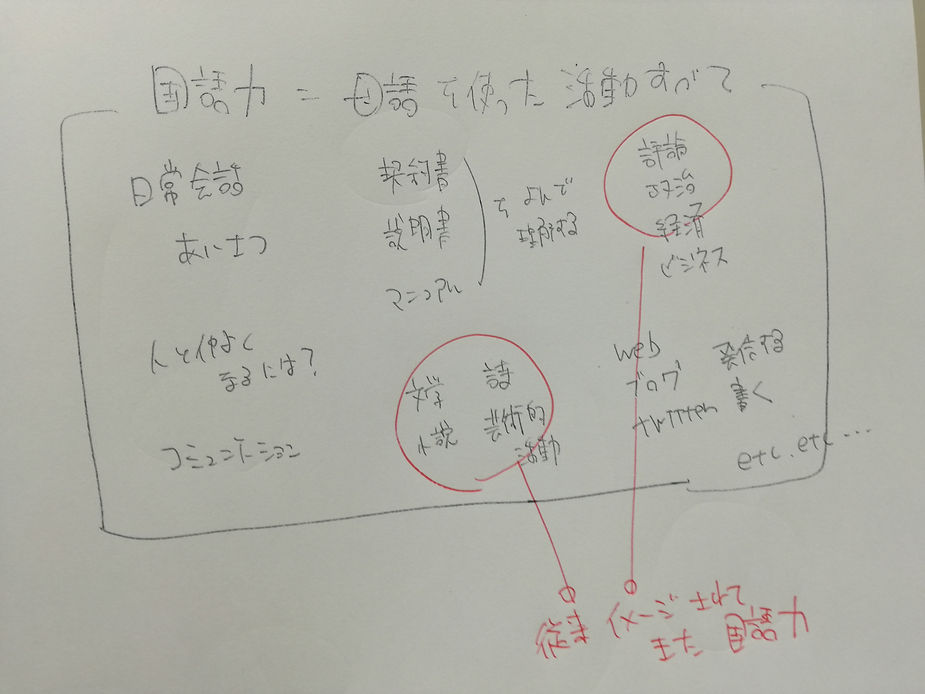 国語力 = 母語を使った活動すべて
日常会話
あいさつ
人と仲よく
なるには?
コミュニケーション
契約書
説明書
マニュアル
をよんで
理解する
文学
小説
詩
芸術的
活動
評論
政治
経済
ビジネス
web
ブログ
twitter
発信する
書く
etc. etc...
従来 イメージされて
きた 国語力